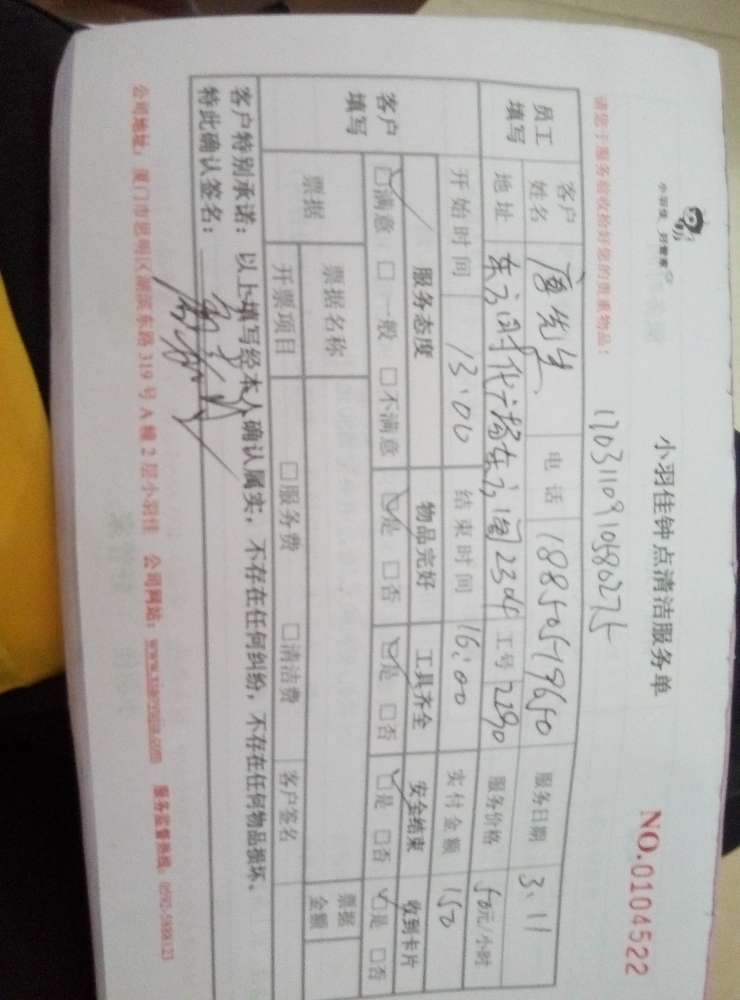 小羽佳_好管家
小羽佳钟点清洁服务单
NO.0104522
请您于服务验收捡好您的贵重物品！
员工填写
客户姓名
先生
电话
服务日期 3.11
地址
东方时代广场东方阁
工号 2290
服务价格 50元/小时
开始时间 13:00 结束时间 16:00 实付金额 150
客户填写
服务态度 物品完好 工具齐全 安全结束 收到卡片
☑满意 □一般 □不满意 ☑是 □否 ☑是 □否 ☑是 □否 ☑是 □否
票据 票据名称 票据金额
开票项目 □服务费 □清洁费 客户签名
客户特别承诺：以上填写经本人确认属实，不存在任何纠纷，不存在任何物品损坏。
特此确认签名：
公司地址：厦门市思明区湖滨东路 319 号 A 幢 2 层小羽佳 公司网站： 服务监督热线：